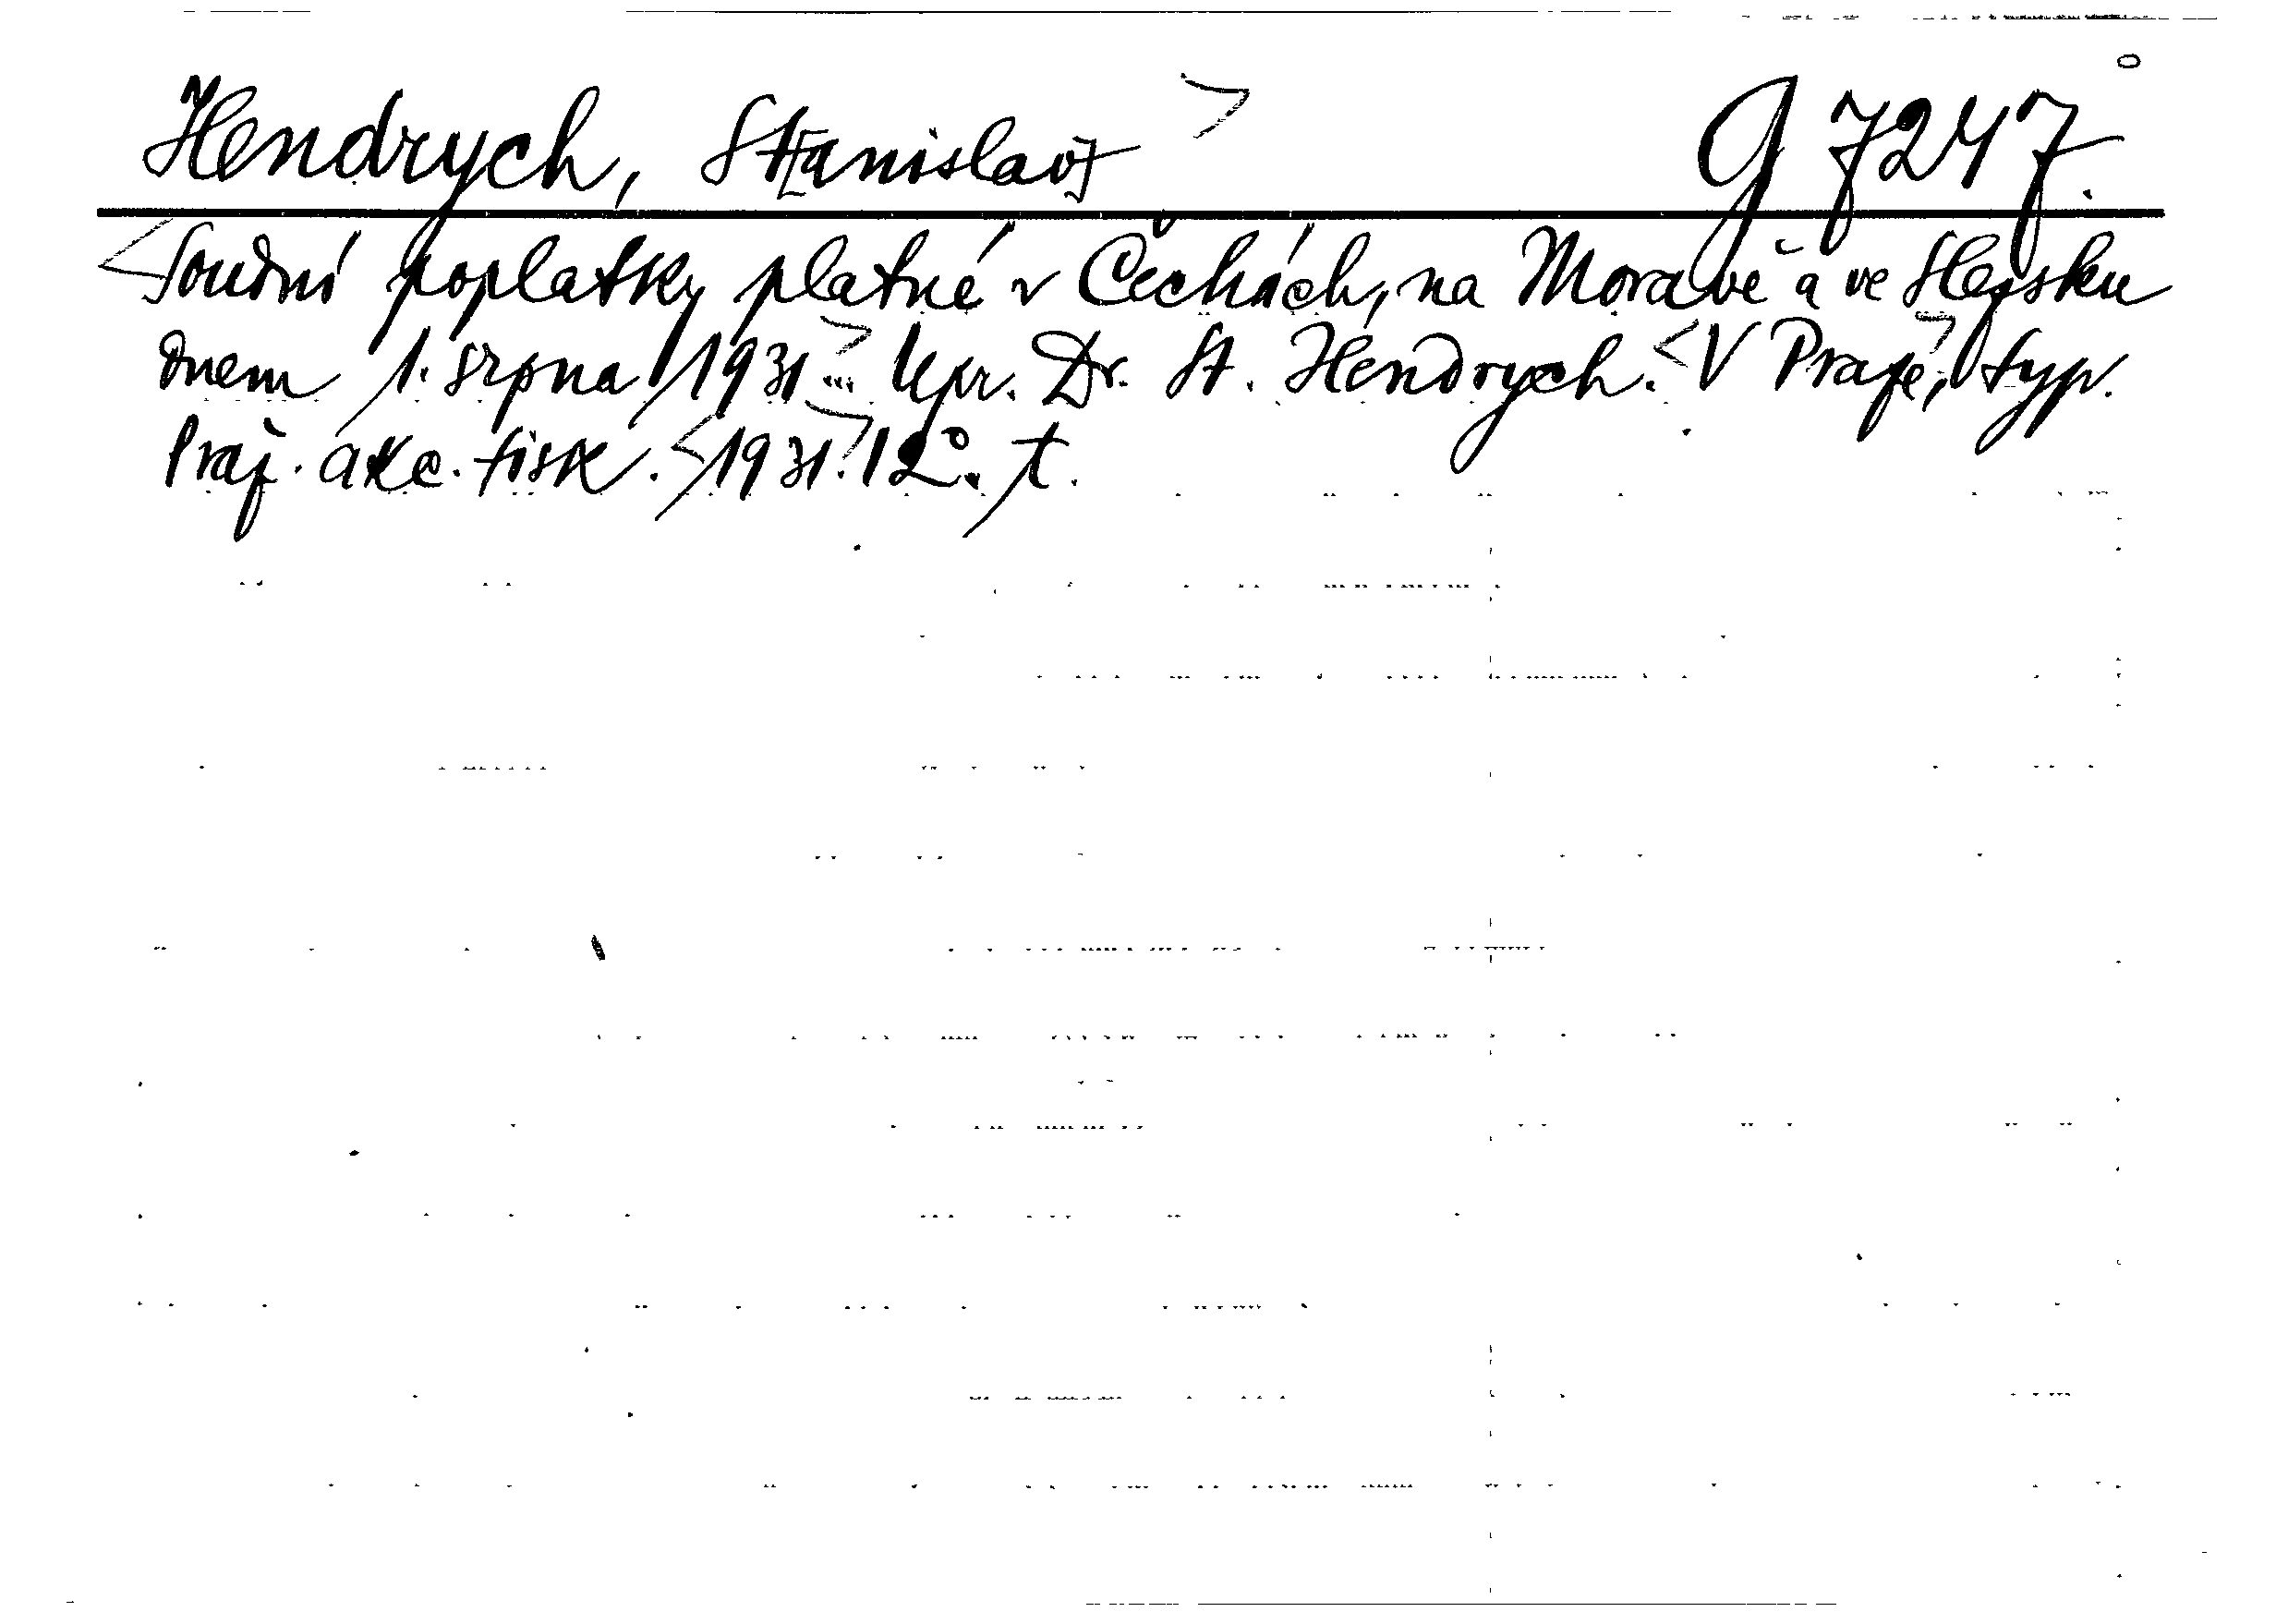 Hendrych, St[anislav] > g 7247.
<Soudní poplatky platné v Čechách, na Moravě a ve Slezsku
dnem 1. srpna 1931...> Upr. Dr. St. Hendrych. <V Praze,> typ.
Praž. akc. tisk. <1931.> 12°. t.